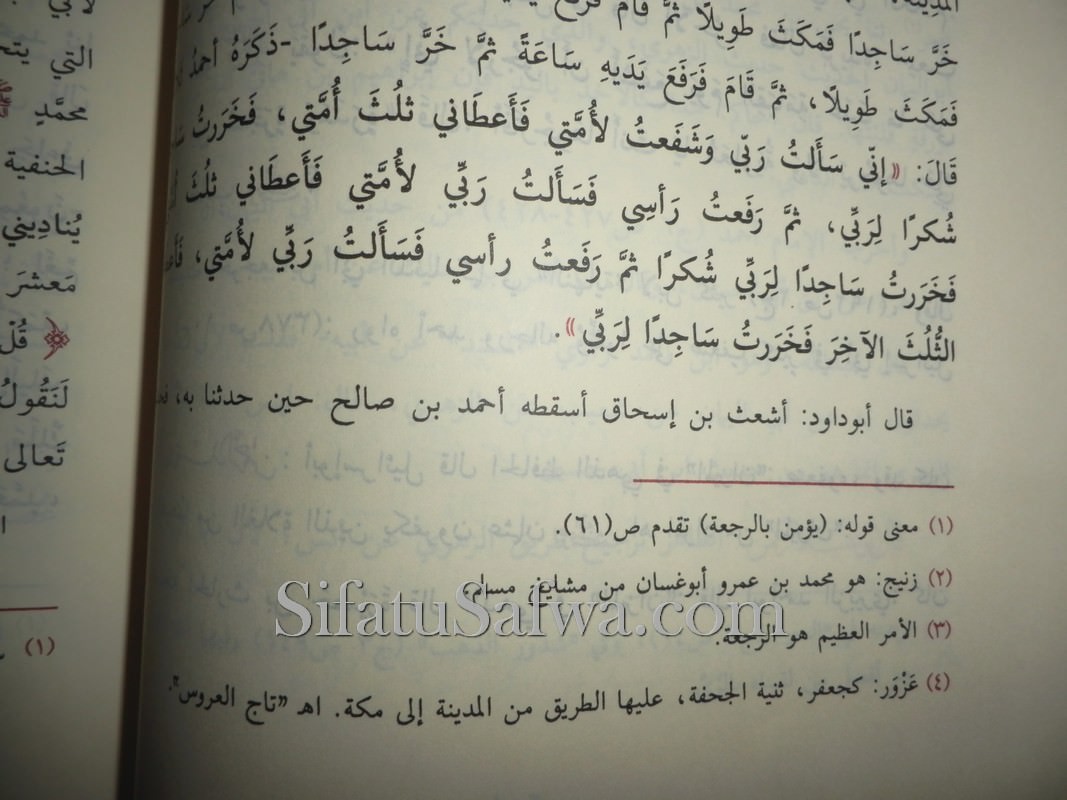 المدينة
خَرَّ سَاجِدًا فَمَكَثَ طَوِيلاً ثمَّ قَامَ فَرَفَعَ
فَمَكَثَ طَوِيلاً، ثمَّ قَامَ فَرَفَعَ يَدَيهِ سَاعَةً ثمَّ خَرَّ سَاجِدًا -ذَكَرَهُ أحمدُ
قَالَ: «إنّي سَأَلتُ رَبّي وَشَفَعتُ لأُمَّتي فَأَعطَاني ثلُثَ أُمَّتي، فَخَرَرتُ
شُكرًا لِرَبِّي، ثمَّ رَفَعتُ رَأسِي فَسَأَلتُ رَبِّي لأُمَّتي فَأَعطَاني ثلُثَ
فَخَرَرتُ سَاجِدًا لِرَبِّي شُكرًا ثمَّ رَفَعتُ رأسي فَسَأَلتُ رَبِّي لأُمَّتي،
الثُّلُثَ الآخِرَ فَخَرَرتُ سَاجِدًا لِرَبِّي».
قال أبوداود: أشعث بن إسحاق أسقطه أحمد بن صالح حين حدثنا به،
(١) معنى قوله: (يؤمن بالرجعة) تقدم ص(٦١).
(٢) زنيج: هو محمد بن عمرو أبوغسان من مشايخ مسلم.
(٣) الأمر العظيم هو الرجعة.
(٤) عَزْوَر: كجعفر، ثنية الجحفة، عليها الطريق من المدينة إلى مكة. اهـ "تاج العروس".
التي
محمَّدٍ ﷺ
الحنفية
يُنادِيني
مَعشَرَ
﴿ قُلْ
لَنَقُولُ
تَعالى
(١)
SifatuSafwa.com